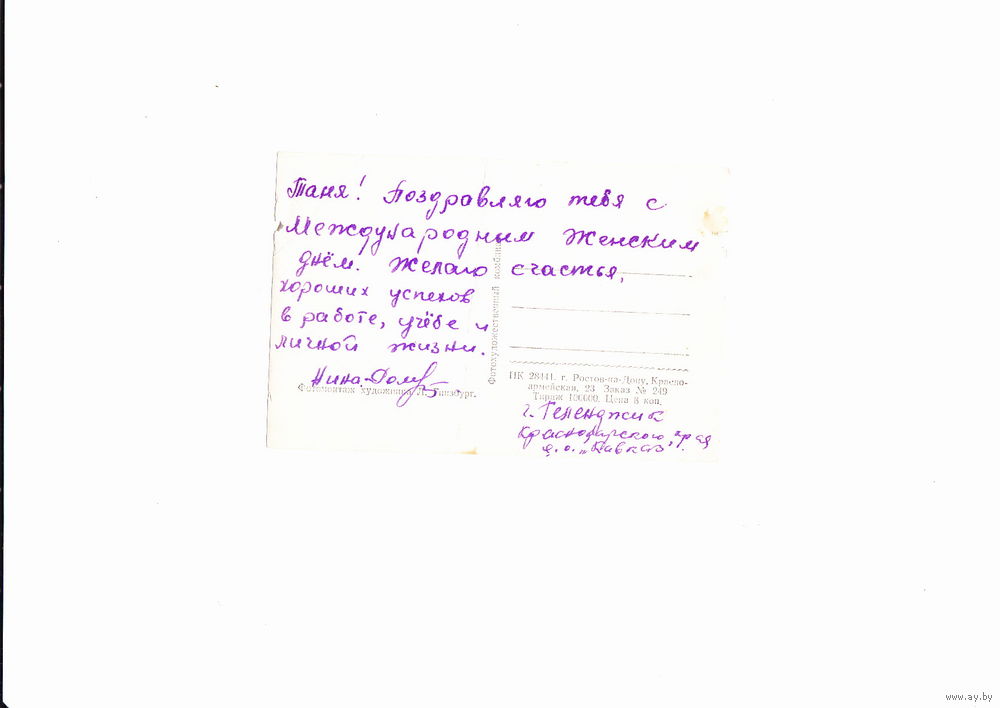 Таня! Поздравляю тебя с
Международным Женским
днём. Желаю счастья,
хороших успехов
в работе, учёбе и
личной жизни.
Нина
Фотомонтаж художника Л. Гинзбург.
Фотохудожественный комбинат
ПК 28441. г. Ростов-на-Дону, Красно-
армейская, 23. Заказ № 249
Тираж 100000. Цена 8 коп.
г. Геленджик
Краснодарского края
д.о. „Кавказ".
www.ay.by